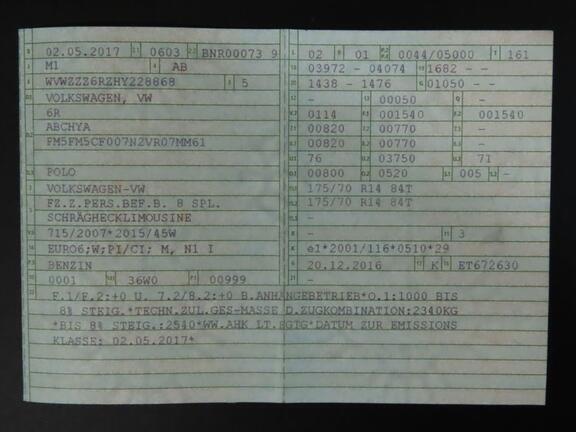 B 02.05.2017 2.1 0603 2.2 BNR00073 9
J M1 4 AB
E WVWZZZ6RZHY228868 3 5
D.1 VOLKSWAGEN, VW
6R
D.2 ABCHYA
FM5FM5CF007N2VR07MM61
D.3 POLO
2 VOLKSWAGEN-VW
5 FZ.Z.PERS.BEF.B. 8 SPL.
SCHRÄGHECKLIMOUSINE
V.9 715/2007*2015/45W
14 EURO6;W;PI/CI; M, N1 I
P.3 BENZIN
10 0001 14.1 36W0 P.1 00999
L 02 9 01 P.2/P.4 0044/05000 T 161
18 03972 - 04074 19 1682 - -
20 1438 - 1476 G 01050 - -
12 - 13 00050 Q -
V.7 0114 F.1 001540 F.2 001540
7.1 00820 7.2 00770 7.3 -
8.1 00820 8.2 00770 8.3 -
U.1 76 U.2 03750 U.3 71
O.1 00800 O.2 0520 S.1 005 S.2 -
15.1 175/70 R14 84T
15.2 175/70 R14 84T
15.3 -
R - 11 3
K e1*2001/116*0510*29
6 20.12.2016 17 K 16 ET672630
21 -
22 F.1/F.2:+0 U. 7.2/8.2:+0 B.ANHÄNGEBETRIEB*O.1:1000 BIS
8% STEIG.*TECHN.ZUL.GES-MASSE D.ZUGKOMBINATION:2340KG
*BIS 8% STEIG.:2540*WW.AHK LT.EGTG*DATUM ZUR EMISSIONS
KLASSE: 02.05.2017*